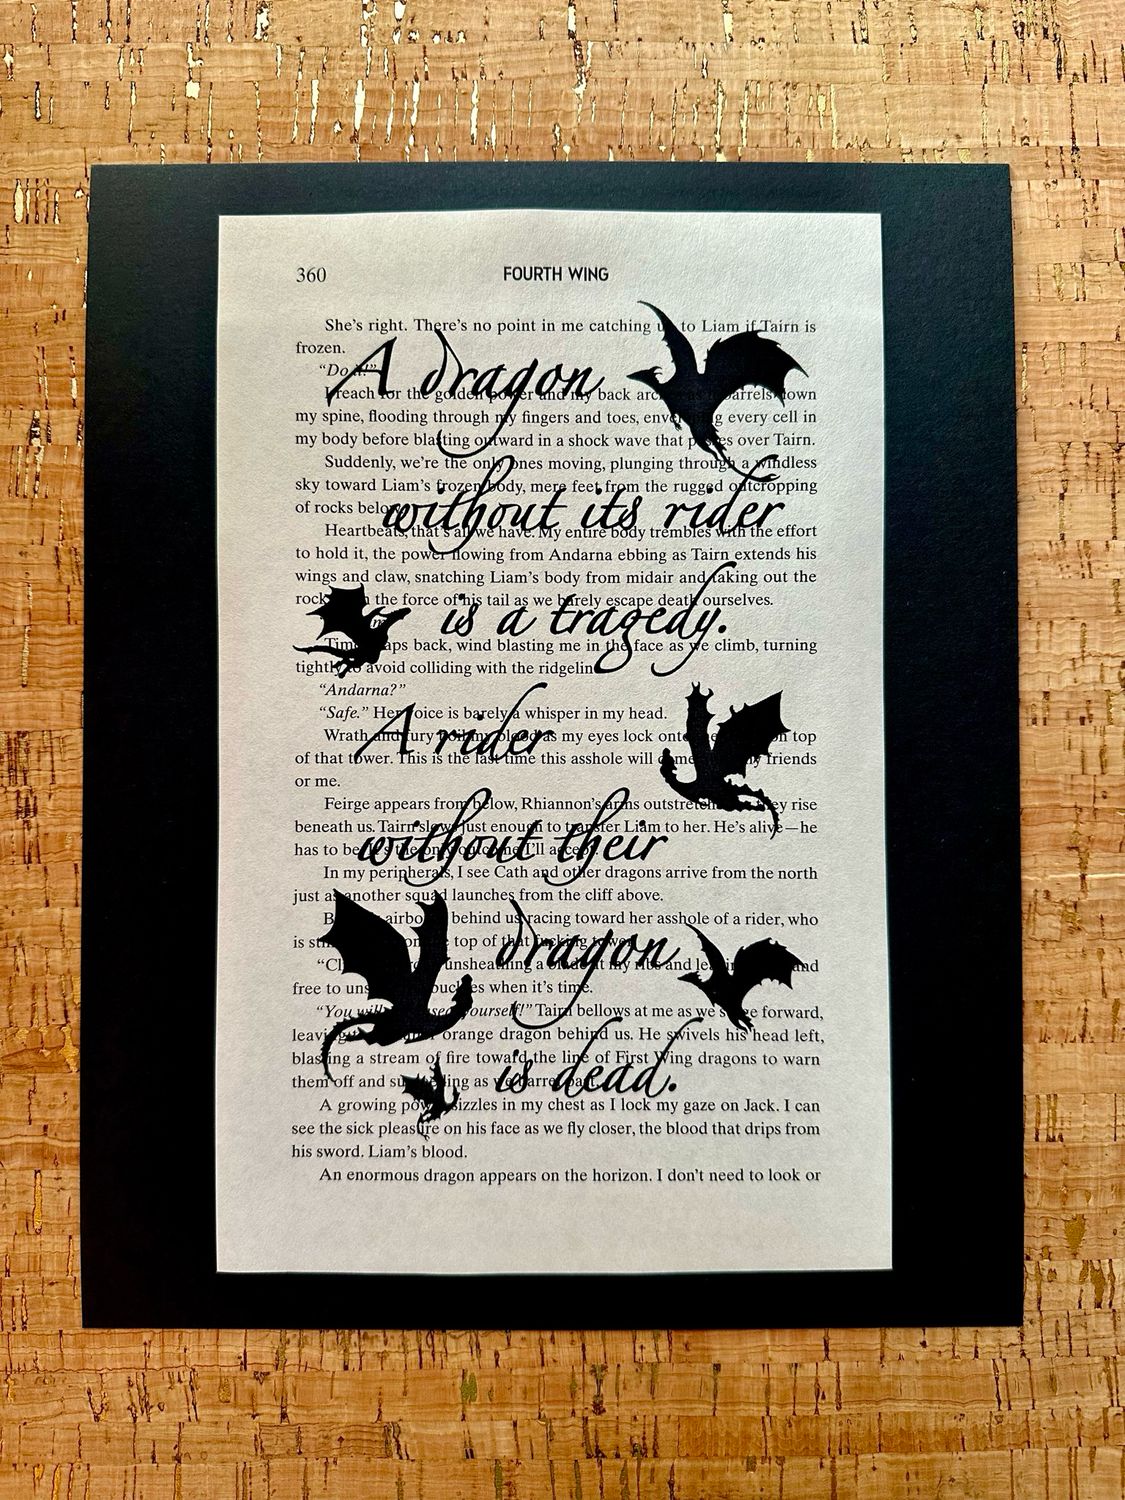 360 FOURTH WING
A dragon
without its rider
is a tragedy.
A rider
without their
dragon
is dead.
She's right. There's no point in me catching to Liam if Tairn is
frozen.
I reach for the golden power and my back down
my spine, flooding through my fingers and toes, every cell in
my body before blasting outward in a shock wave that over Tairn.
Suddenly, we're the only ones moving, plunging through a windless
sky toward Liam's frozen body, mere feet from the rugged outcropping
of rocks
Heartbeats, that's all we have. My entire body trembles with the effort
to hold it, the power flowing from Andarna ebbing as Tairn extends his
wings and claw, snatching Liam's body from midair and taking out the
the force of his tail as we barely escape death ourselves.
back, wind blasting me in the face as we climb, turning
tightly to avoid colliding with the ridgeline
"Andarna?"
"Safe." Her voice is barely a whisper in my head.
Wrath and fury boil my blood as my eyes lock top
of that tower. This is the last time this asshole will friends
or me.
Feirge appears from below, Rhiannon's arms outstretched they rise
beneath us. Tairn slows just enough to transfer Liam to her. He's alive—he
has to be. It's the only outcome I'll accept.
In my peripherals, I see Cath and other dragons arrive from the north
just as another squad launches from the cliff above.
behind us, racing toward her asshole of a rider, who
is top of that fucking tower.
unsheathing a blade at my ribs and
free to when it's time.
"You will yourself!" Tairn bellows at me as we forward,
orange dragon behind us. He swivels his head left,
blasting a stream of fire toward the line of First Wing dragons to warn
them off and as we barrel past.
A growing power sizzles in my chest as I lock my gaze on Jack. I can
see the sick pleasure on his face as we fly closer, the blood that drips from
his sword. Liam's blood.
An enormous dragon appears on the horizon. I don't need to look or